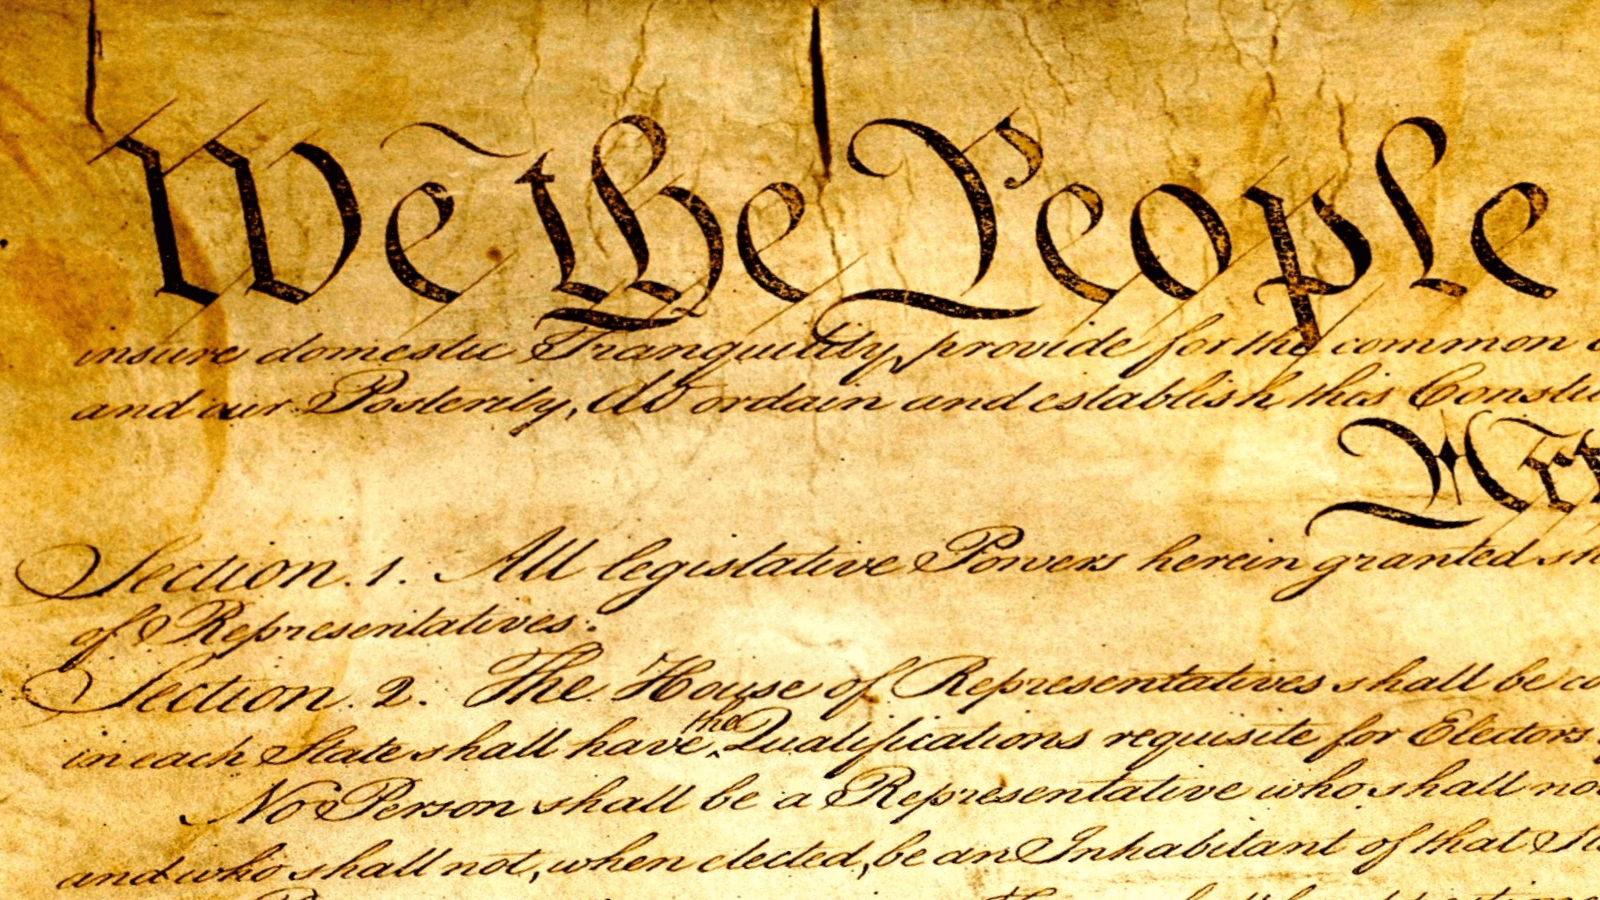 We the People
insure domestic Tranquility, provide for the common
and our Posterity, do ordain and establish this Constitu
Section. 1. All legislative Powers herein granted sh
of Representatives.
Section. 2. The House of Representatives shall be co
the
in each State shall have Qualifications requisite for Electors
No Person shall be a Representative who shall not
and who shall not, when elected, be an Inhabitant of that St